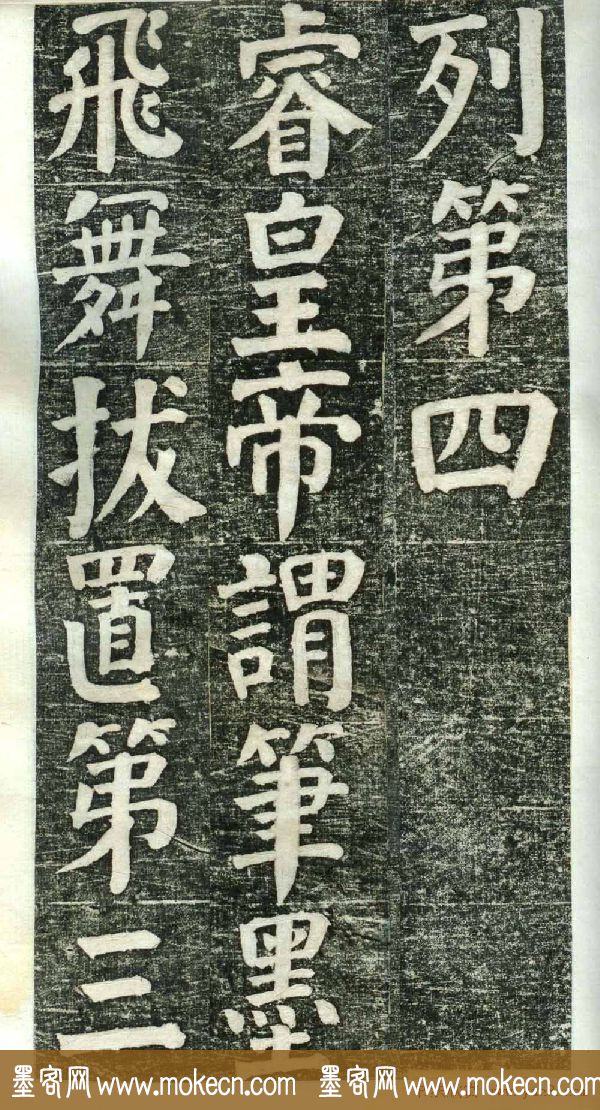 列第四
睿皇帝謂筆墨
飛舞拔置第三
墨客网 www.mokecn.com 墨客网 www.mokecn.com